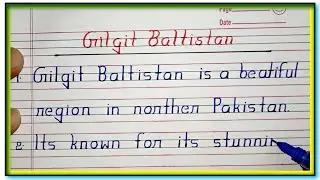 Page
Date
Gilgit Baltistan
1. Gilgit Baltistan is a beatiful
region in nonthen Pakistan.
2. Its known for its stunnin